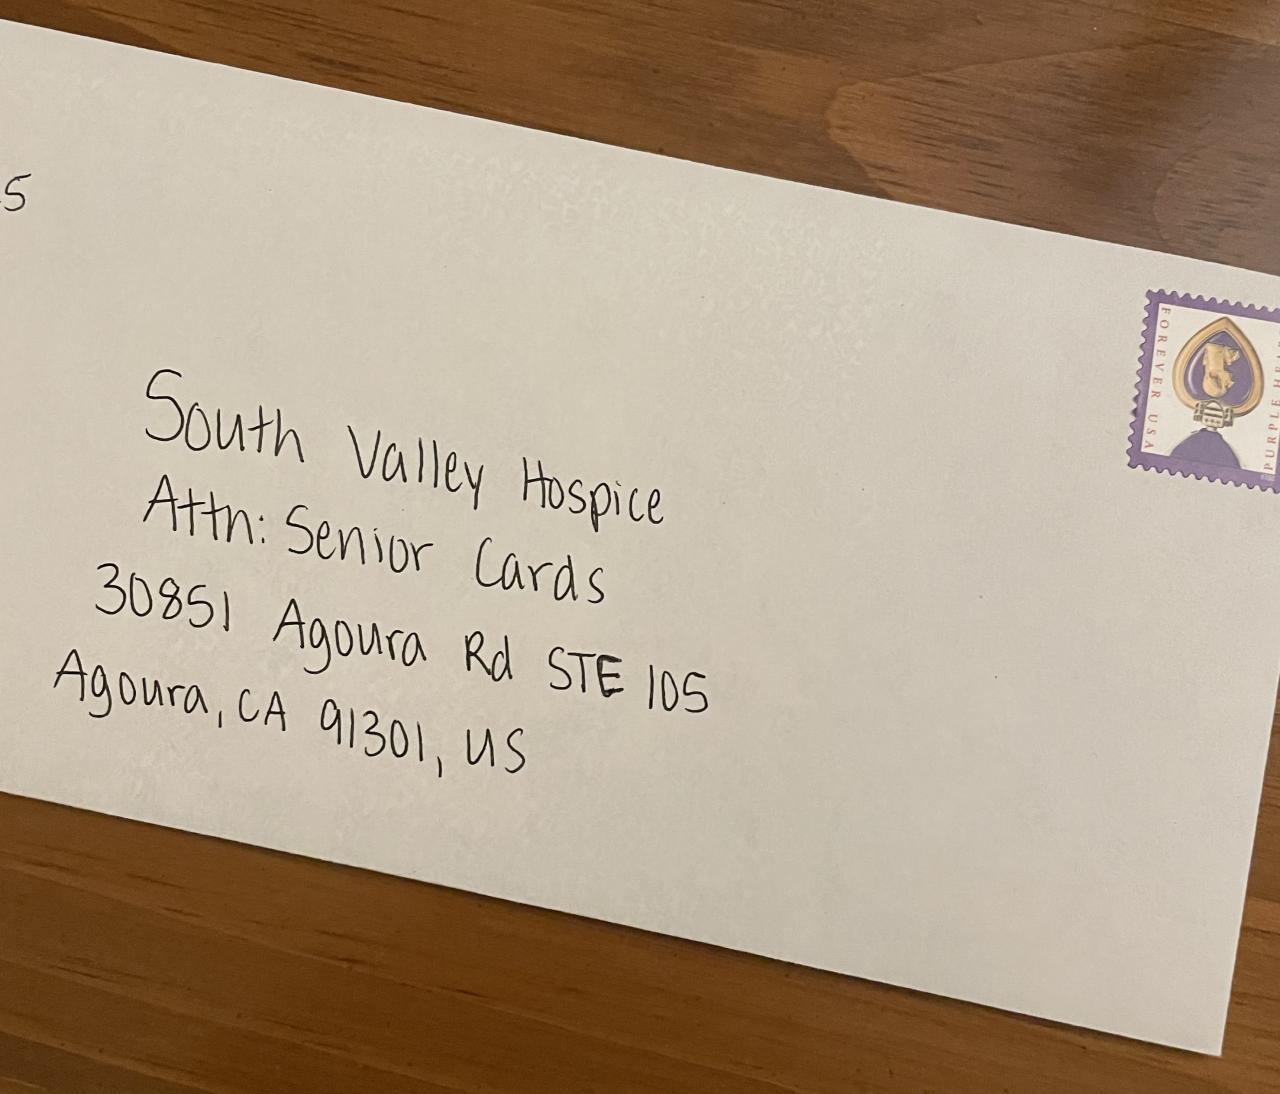 5
South Valley Hospice
Attn: Senior Cards
30851 Agoura Rd STE 105
Agoura, CA 91301, US
FOREVER USA
PURPLE HEA